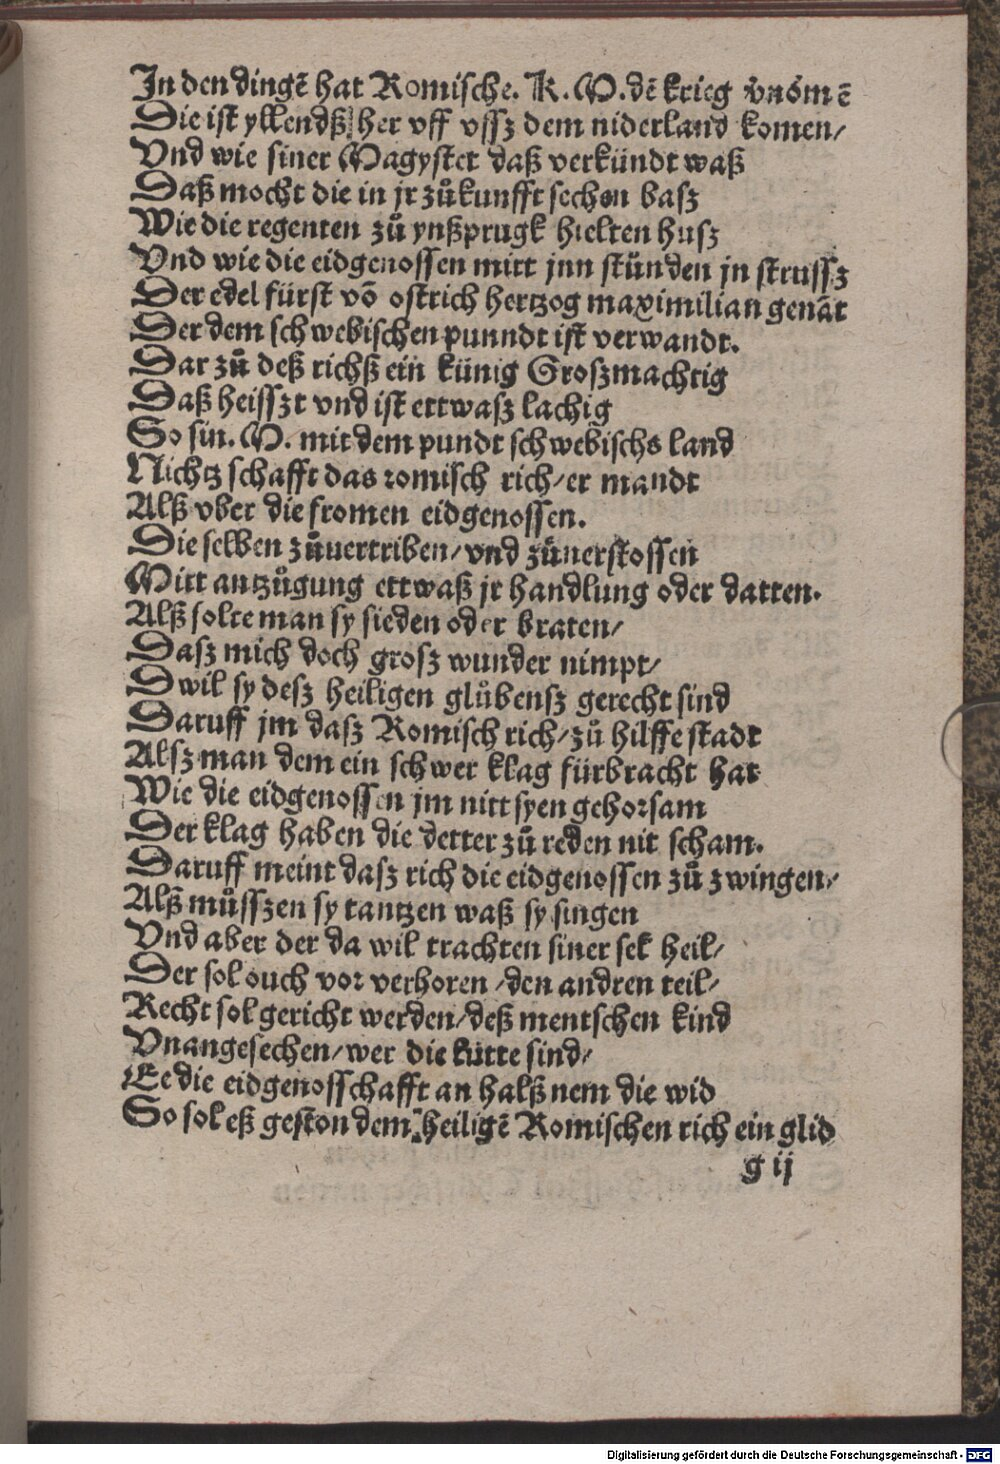 In den dingē hat Romische. K. M. dē krieg v̄nōmē
Die ist yllendß her vff vssz dem niderland komen/
Vnd wie siner Magystet daß verkündt waß
Daß mocht die in jr zůkunfft sechen basz
Wie die regenten zů ynßprugk hielten husz
Vnd wie die eidgenossen mitt jnn stůnden jn strussz
Der edel fürst vō ostrich hertzog maximilian genāt
Der dem schwebischen punndt ist verwandt.
Dar zů deß richß ein künig Groszmachtig
Daß heisszt vnd ist ettwasz lachig
So sin. M. mit dem pundt schwebischs land
Nichtz schafft das romisch rich/er mandt
Alß vber die fromen eidgenossen.
Die selben zůuertriben/vnd zůuerstossen
Mitt antzůgung ettwaß jr handlung oder datten.
Alß solte man sy sieden oder braten/
Dasz mich doch grosz wunder nimpt/
Dwil sy desz heiligen glůbensz gerecht sind
Daruff jm dasz Romisch rich/zů hilffe stadt
Alsz man dem ein schwer klag fürbracht hat
Wie die eidgenossen jm nitt syen gehorsam
Der klag haben die detter zů reden nit scham.
Daruff meint dasz rich die eidgenossen zů zwingen/
Alß můsszen sy tantzen waß sy singen
Vnd aber der da wil trachten siner sel heil/
Der sol ouch vor verhoren/den andren teil/
Recht sol gericht werden/deß mentschen kind
Vnangesechen/wer die lütte sind/
Ee die eidgenosschafft an halß nem die wid
So sol eß geston dem heiligē Romischen rich ein glid
g ij
Digitalisierung gefördert durch die Deutsche Forschungsgemeinschaft - DFG